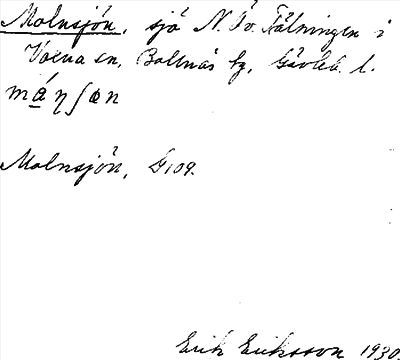 Molnsjön, sjö N. Tv. Fälningen i
Voxna sn, Bollnäs tg, Gävleb. l.
Molnsjön, G109.
Erik Eriksson 1930.